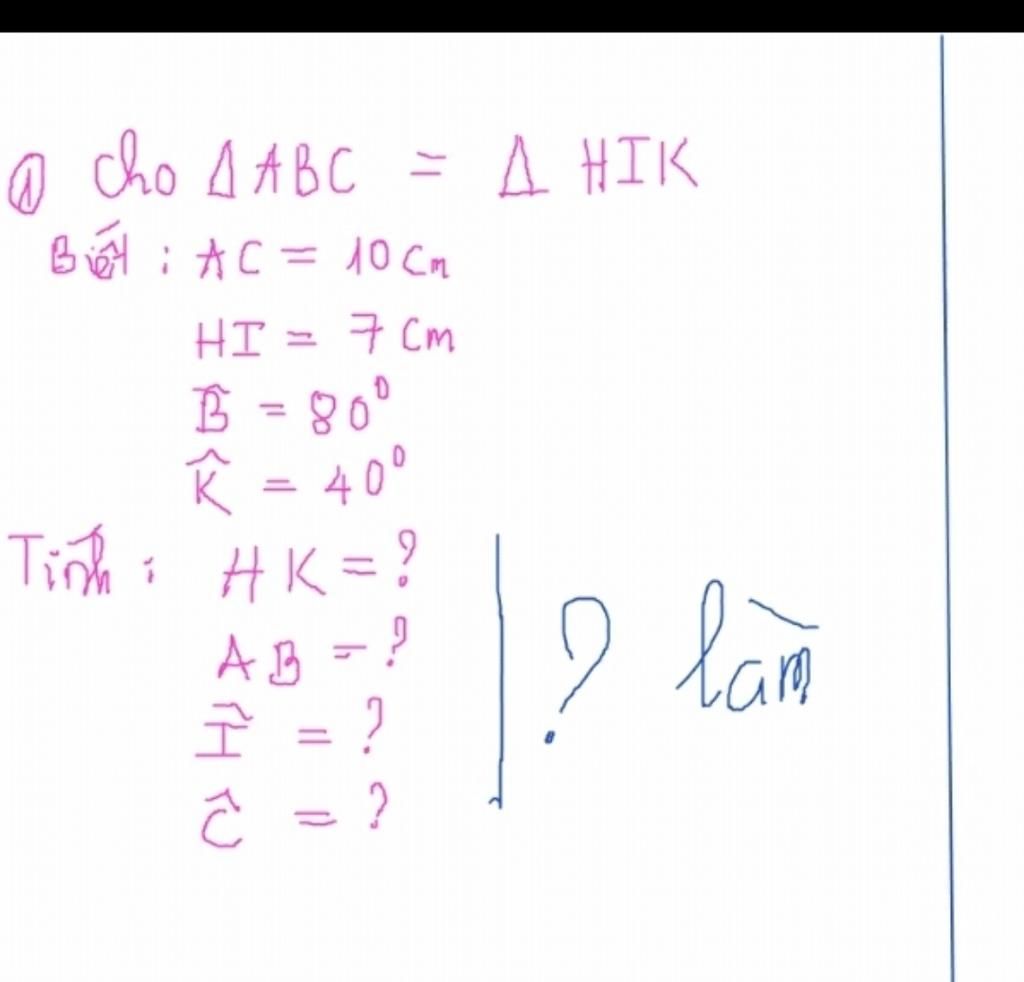 ① Cho Δ ABC = Δ HIK
Biết : AC = 10 Cm
HI = 7 Cm
B̂ = 80⁰
K̂ = 40⁰
Tính : HK = ?
AB = ?
Î = ?
Ĉ = ?
? làm